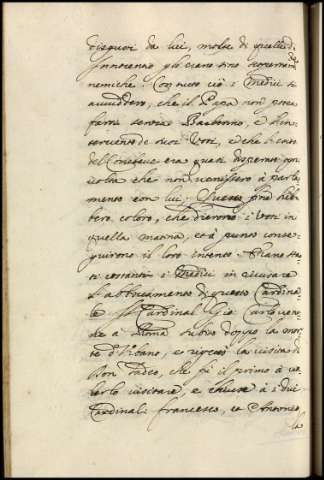 disquori da lui, molte di quelle di
Innocenzo gli erano sino
nemiche. Con tutto ciò i Medici si
avviddero, che il Papa non potea
farsi senza Barberino, e
de suoi Voti, e che l'
del Conclave era quasi disperato ogni
volta che non venissero à parla
mento con lui; Questo fine heb
bero coloro, che dierono i voti in
quella matina, et à punto conse
guirono il loro intento. Erano sta
ti costanti i Medici in ricusare
l'abboccamento di questo Cardina
le. Il Cardinal Gio: Carlo venne
à Roma subito doppo la mor
te d'Urbano, e ricusò la visita di
Don Tadeo, che fù il primo à vo
lerlo visitare, e chiuse à i due
Cardinali Francesco, et Antonio
la